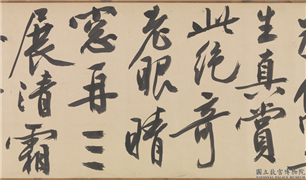 生真賞
此絕奇
老眼晴
窓再三
展清霜
國立故宮博物院